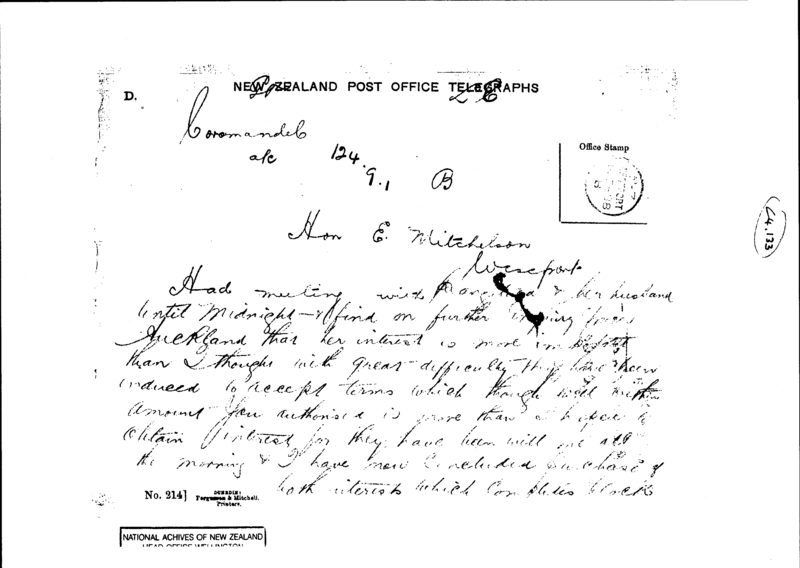 NEW ZEALAND POST OFFICE TELEGRAPHS
D.
Coromandel
a/c 124
9.1 B
Office Stamp
Hon E. Mitchelson
Westport
L4.133
Had meeting with & her husband
until Midnight & find on further inquiry from
Auckland that her interest is more important
than I thought with great difficulty they have been
induced to accept terms which though well within
amount you authorised is more than I hoped to
obtain interest for they have been with me all
the morning & I have now concluded purchase of
both interests which completes block
No. 214]
DUNEDIN:
Fergusson & Mitchell,
Printers.
NATIONAL ACHIVES OF NEW ZEALAND
HEAD OFFICE WELLINGTON